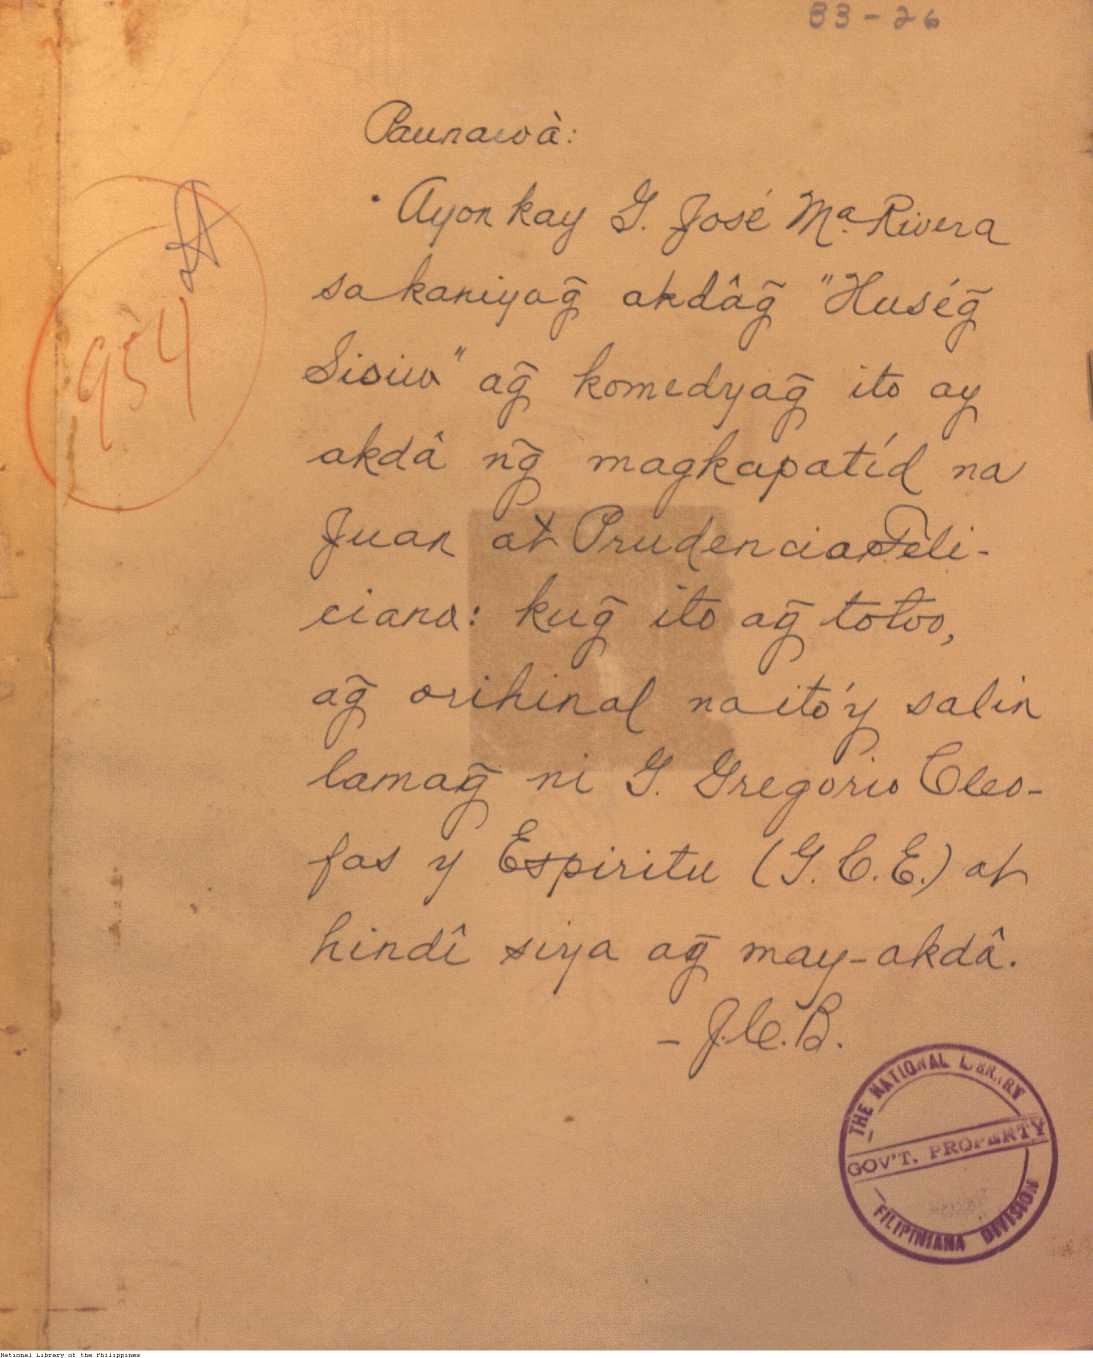 83-26
Paunawà:
Ayon kay G. José Mª Rivera
sa kaniyag̃ akdâg̃ "Huség̃
Sisiw" ag̃ komedyag̃ ito ay
akdâ ng̃ magkapatíd na
Juan at Prudencia Feli-
ciano: kug̃ ito ag̃ totoo,
ag̃ orihinal na itó'y salin
lamag̃ ni G. Gregorio Cleo-
fas y Espiritu (G.C.E.) at
hindî siya ag̃ may-akdâ.
- J.C.B.
954
THE NATIONAL LIBRARY
GOV'T. PROPERTY
FILIPINIANA DIVISION
National Library of the Philippines